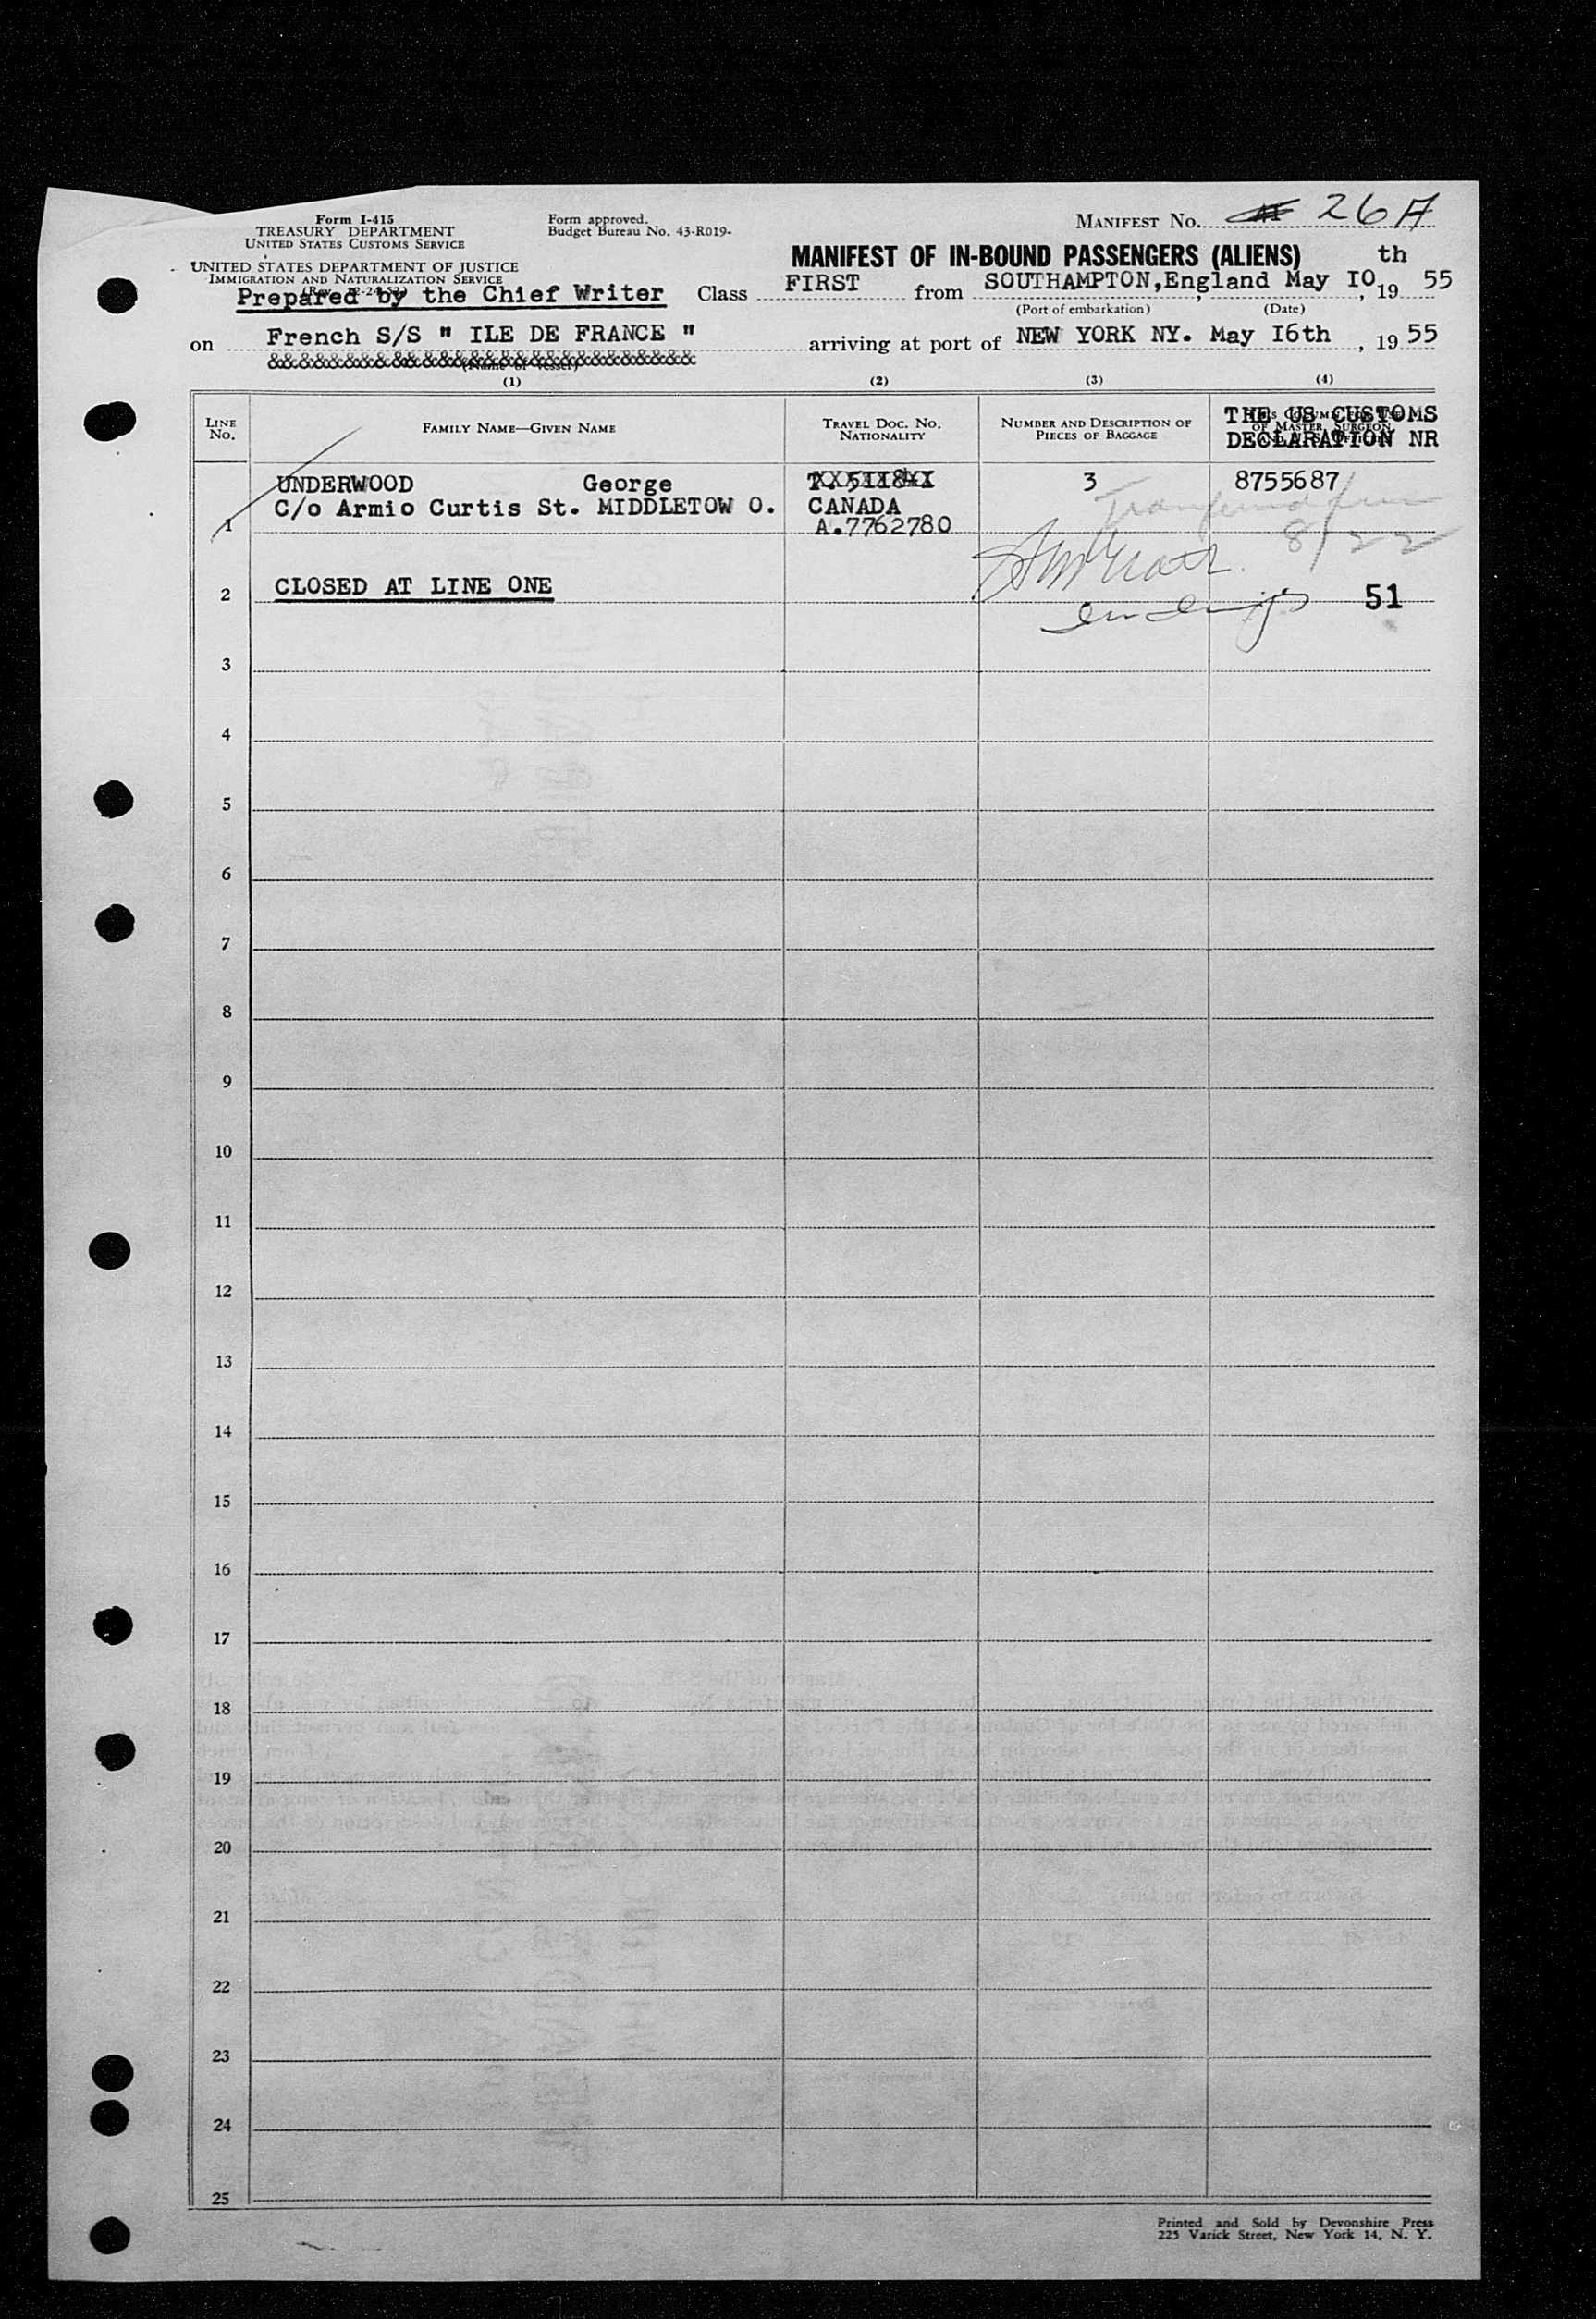 Form I-415
TREASURY DEPARTMENT
UNITED STATES CUSTOMS SERVICE
Form approved.
Budget Bureau No. 43-R019-
MANIFEST NO. 26A
UNITED STATES DEPARTMENT OF JUSTICE
IMMIGRATION AND NATURALIZATION SERVICE
MANIFEST OF IN-BOUND PASSENGERS (ALIENS) th
Prepared by the Chief Writer Class FIRST from SOUTHAMPTON,England May IO, 19 55
(Port of embarkation) (Date)
on French S/S " ILE DE FRANCE " arriving at port of NEW YORK NY. May I6th , 19 55
&&&&&&&&&&&&&&&&&&&&&&&&&&&&
(Name of Vessel)
(1) (2) (3) (4)
LINE No. FAMILY NAME—GIVEN NAME TRAVEL DOC. NO. NATIONALITY NUMBER AND DESCRIPTION OF PIECES OF BAGGAGE THE US CUSTOMS DECLARATION NR
UNDERWOOD George 3 8755687
C/o Armio Curtis St. MIDDLETOW O. CANADA
1 A.7762780 8/22
2 CLOSED AT LINE ONE 51
3
4
5
6
7
8
9
10
11
12
13
14
15
16
17
18
19
20
21
22
23
24
25
Printed and Sold by Devonshire Press
225 Varick Street, New York 14, N. Y.